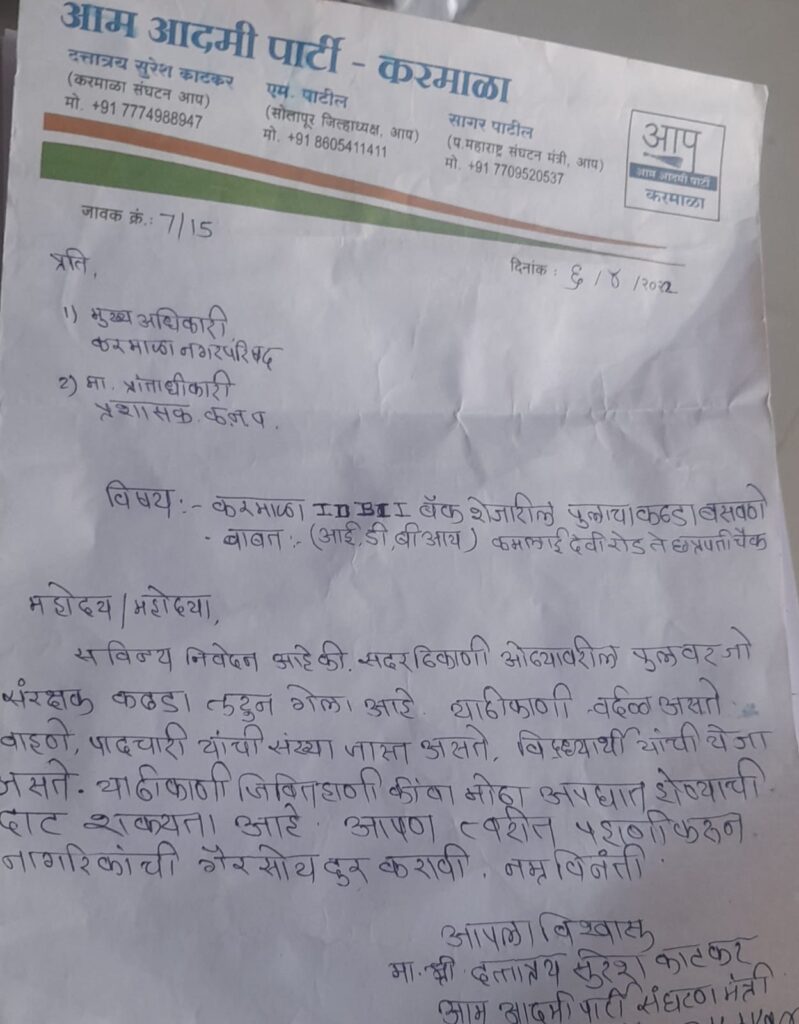 आम आदमी पार्टी - करमाळा
दत्तात्रय सुरेश काटकर
(करमाळा संघटन आप)
मो. +91 7774988947
एम. पाटील
(सोलापूर जिल्हाध्यक्ष, आप)
मो. +91 8605411411
सागर पाटील
(प.महाराष्ट्र संघटन मंत्री, आप)
मो. +91 7709520537
आप
आम आदमी पार्टी
करमाळा
जावक क्रं.: 7/15
दिनांक : ६ / ४ /२०२२
प्रति,
1) मुख्य अधिकारी
करमाळा नगरपरिषद
2) मा. प्रांताधीकारी
प्रशासक. क.न.प.
विषय:- करमाळा IDBI बँक शेजारील पुलाचा कठडा बसवणे
- बाबत :- (आई.डी.बी.आय) कमलाई देवी रोड ते छत्रपती चौक
महोदय/महोदया,
सविनय निवेदन आहे की. सदर ठिकाणी ओढ्यावरील पुलवर जो
संरक्षक कठडा तुटुन गेला आहे. याठीकाणी वर्दळ असते.
वाहने, पादचारी यांची संख्या जास्त असते, विद्यार्थी यांची येजा
असते. याठीकाणी जिवितहाणी कींवा मोठा अपघात होण्याची
दाट शक्यता आहे. आपण त्वरीत पहाणी करून
नागरिकांची गैरसोय दुर करावी. नम्र विनंती.
आपला विश्वासु
मा. श्री दत्तात्रय सुरेश काटकर
आम आदमी पार्टी संघटण मंत्री